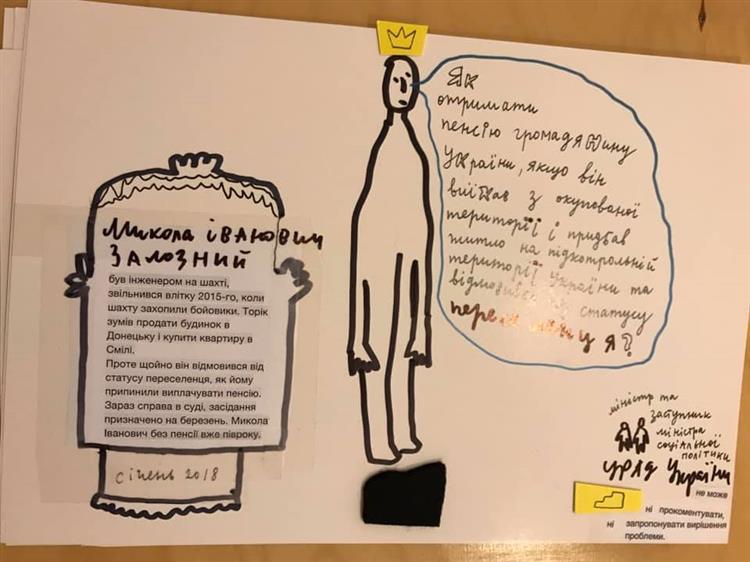 Микола Іванович
Залозний
був інженером на шахті,
звільнився влітку 2015-го, коли
шахту захопили бойовики. Торік
зумів продати будинок в
Донецьку і купити квартиру в
Смілі.
Проте щойно він відмовився від
статусу переселенця, як йому
припинили виплачувати пенсію.
Зараз справа в суді, засідання
призначено на березень. Микола
Іванович без пенсії вже півроку.
січень 2018
Як
отримати
пенсію громадянину
України, якщо він
виїхав з окупованої
території і придбав
житло на підконтрольній
території України та
статусу
міністр та
заступник
міністра
соціальної
політики
уряд України
не може
ні прокоментувати,
ні запропонувати вирішення
проблеми.